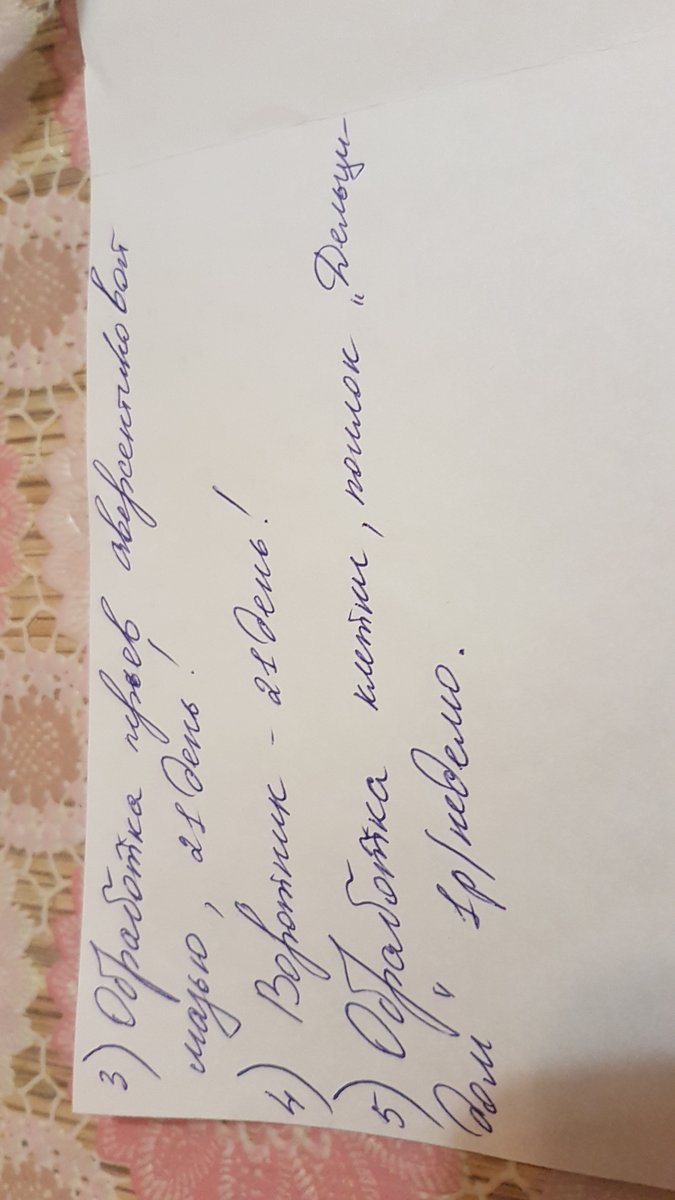 3) Обработка перьев аверсектиновой
мазью, 21 день!
4) Воротник - 21 день!
5) Обработка клетки, полок "Дельци-
дом" 1р/неделю.